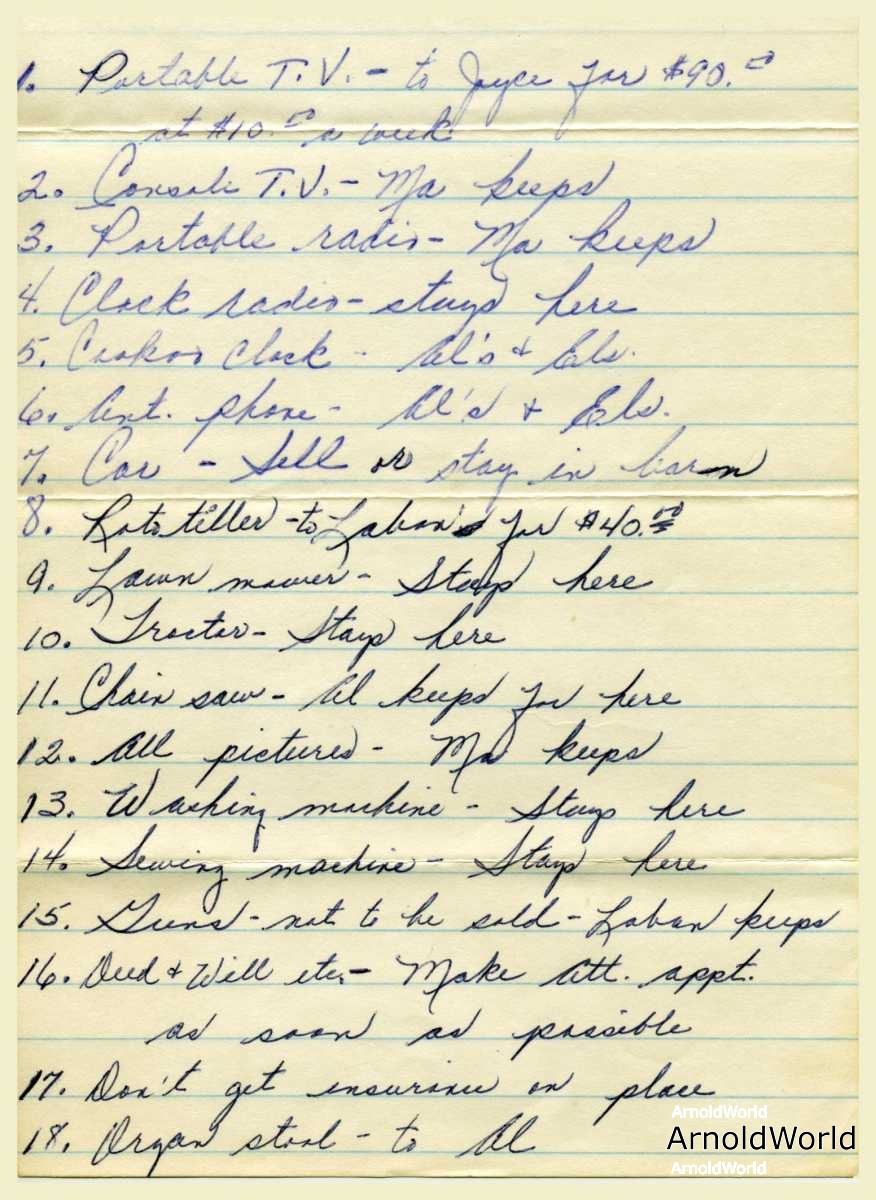 1. Portable T.V. - to Joyce for $90.00
at $10.00 a week
2. Console T.V. - Ma keeps
3. Portable radio - Ma keeps
4. Clock radio - stays here
5. Cookoo clock - Al's & Els.
6. Ant. phone - Al's & Els.
7. Car - Sell or stay in barn
8. Roto tiller - to Laban for $40.00
9. Lawn mower - Stays here
10. Tractor - Stays here
11. Chain saw - Al keeps for here
12. All pictures - Ma keeps
13. Washing machine - Stays here
14. Sewing machine - Stays here
15. Guns - not to be sold - Laban keeps
16. Deed & Will etc. - Make Att. appt.
as soon as possible
17. Don't get insurance on place
18. Organ stool - to Al
ArnoldWorld
ArnoldWorld
ArnoldWorld